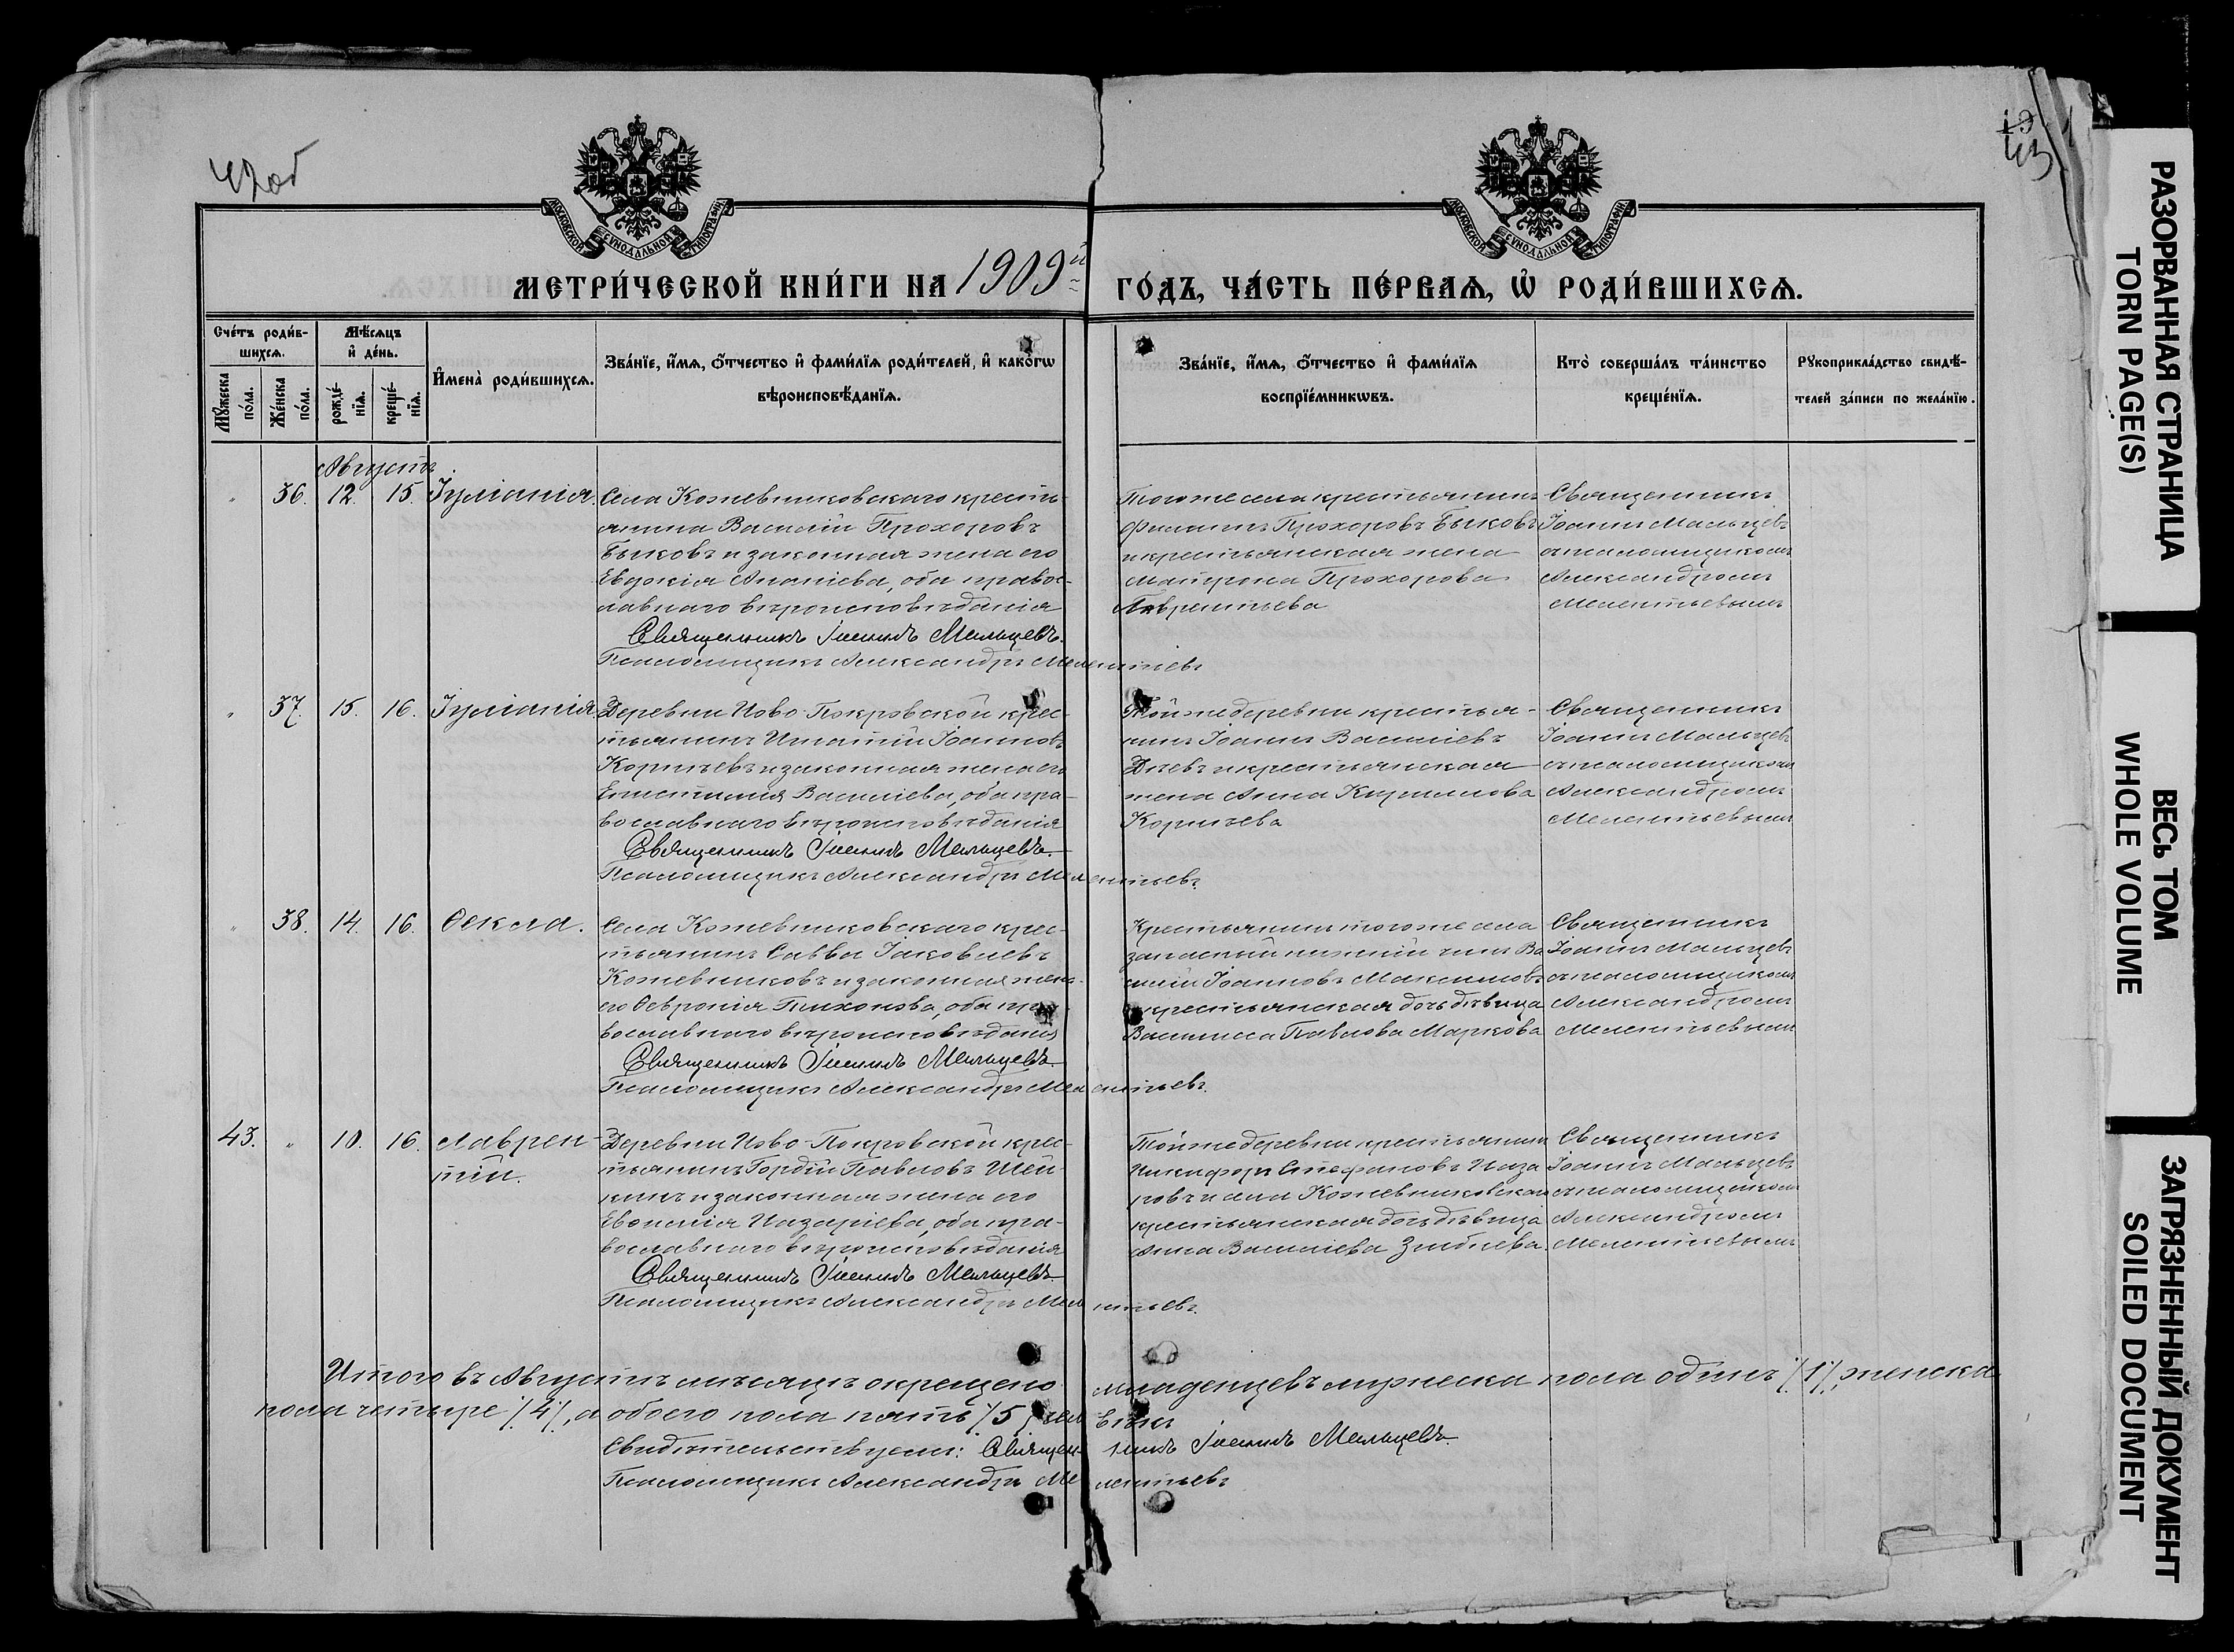 42об
19
43
МОСКОВСКОЙ СѴНОДАЛЬНОЙ ТИПОГРАФІИ
МОСКОВСКОЙ СѴНОДАЛЬНОЙ ТИПОГРАФІИ
МЕТРИ́ЧЕСКОЙ КНИ́ГИ НА 1909й
ГО́ДЪ, ЧА́СТЬ ПЕ́РВАѦ, Ѡ҆ РОДИ́ВШИХСѦ.
Сче́тъ роди́в-
шихсѧ.
Мꙋ́жеска по́ла.
Же́нска по́ла.
Мѣ́сѧцъ
и҆ де́нь.
рожде́-
нїѧ.
креще́-
нїѧ.
И҆мена̀ роди́вшихсѧ.
Зва́нїе, и҆́мѧ, ѻ҆́тчество и҆ фами́лїѧ роди́телей, и҆ како́гѡ
вѣроисповѣ́данїѧ.
Зва́нїе, и҆́мѧ, ѻ҆́тчество и҆ фами́лїѧ
воспрїе́мникѡвъ.
Кто̀ соверша́лъ та́инство
креще́нїѧ.
Рꙋкоприкла́дство свидѣ́-
телей за́писи по жела́нїю.
Августъ
" 36. 12. 15. Іуліанія.
Села Кожевниковскаго кресть-
янинъ Василій Прохоровъ
Быковъ и законная жена его
Евдокія Ананіева, оба правос-
лавнаго вѣроисповѣданія
Священникъ Іоаннъ Мальцевъ.
Псаломщикъ Александръ Мелентьевъ
Того же села крестьянинъ
Филиппъ Прохоровъ Быковъ
и крестьянская жена
Матрона Прохорова
Лаврентьева
Священникъ
Іоаннъ Мальцевъ
съ псаломщикомъ
Александромъ
Мелентьевымъ
" 37. 15. 16. Іуліанія.
Деревни Ново-Покровской крес-
тьянинъ Игнатій Іоанновъ
Корнѣевъ и законная жена его
Епистимія Василіева, оба пра-
вославнаго вѣроисповѣданія
Священникъ Іоаннъ Мальцевъ.
Псаломщикъ Александръ Мелентьевъ.
Той же деревни крестья-
нинъ Іоаннъ Василіевъ
и крестьянская
жена Анна Кириллова
Корнѣева
Священникъ
Іоаннъ Мальцевъ
съ псаломщикомъ
Александромъ
Мелентьевымъ
" 38. 14. 16. Ѳекла.
Села Кожевниковскаго крес-
тьянинъ Савва Іаковлевъ
Кожевниковъ и законная жена
его Ѳевронія Тихонова, оба пра-
вославнаго вѣроисповѣданія
Священникъ Іоаннъ Мальцевъ.
Псаломщикъ Александръ Мелентьевъ.
Крестьянинъ того же села
запасный нижній чинъ Ва
силій Іоанновъ Максимовъ
и крестьянская дочь дѣвица
Василиса Павлова Маркова
Священникъ
Іоаннъ Мальцевъ
съ псаломщикомъ
Александромъ
Мелентьевымъ
43. " 10. 16. Лаврен-
тій.
Деревни Ново-Покровской крес-
тьянинъ Гордій Павловъ Шей-
кинъ и законная жена его
Евѳимія Назаріева, оба пра-
вославнаго вѣроисповѣданія
Священникъ Іоаннъ Мальцевъ.
Псаломщикъ Александръ Мелентьевъ.
Той же деревни крестьянинъ
Никифоръ Стефановъ Наза
ровъ и села Кожевниковскаго
крестьянская дочь дѣвица
Анна Василіева
Священникъ
Іоаннъ Мальцевъ
съ псаломщикомъ
Александромъ
Мелентьевымъ
Итого въ Августѣ мѣсяцѣ окрещено младенцевъ мужеска пола одинъ /1/, женска
пола четыре /4/, а обоего пола пять /5/ человѣкъ
Свидѣтельствуемъ: Священникъ Іоаннъ Мальцевъ.
Псаломщикъ Александръ Мелентьевъ
РАЗОРВАННАЯ СТРАНИЦА
TORN PAGE(S)
ВЕСЬ ТОМ
WHOLE VOLUME
ЗАГРЯЗНЕННЫЙ ДОКУМЕНТ
SOILED DOCUMENT